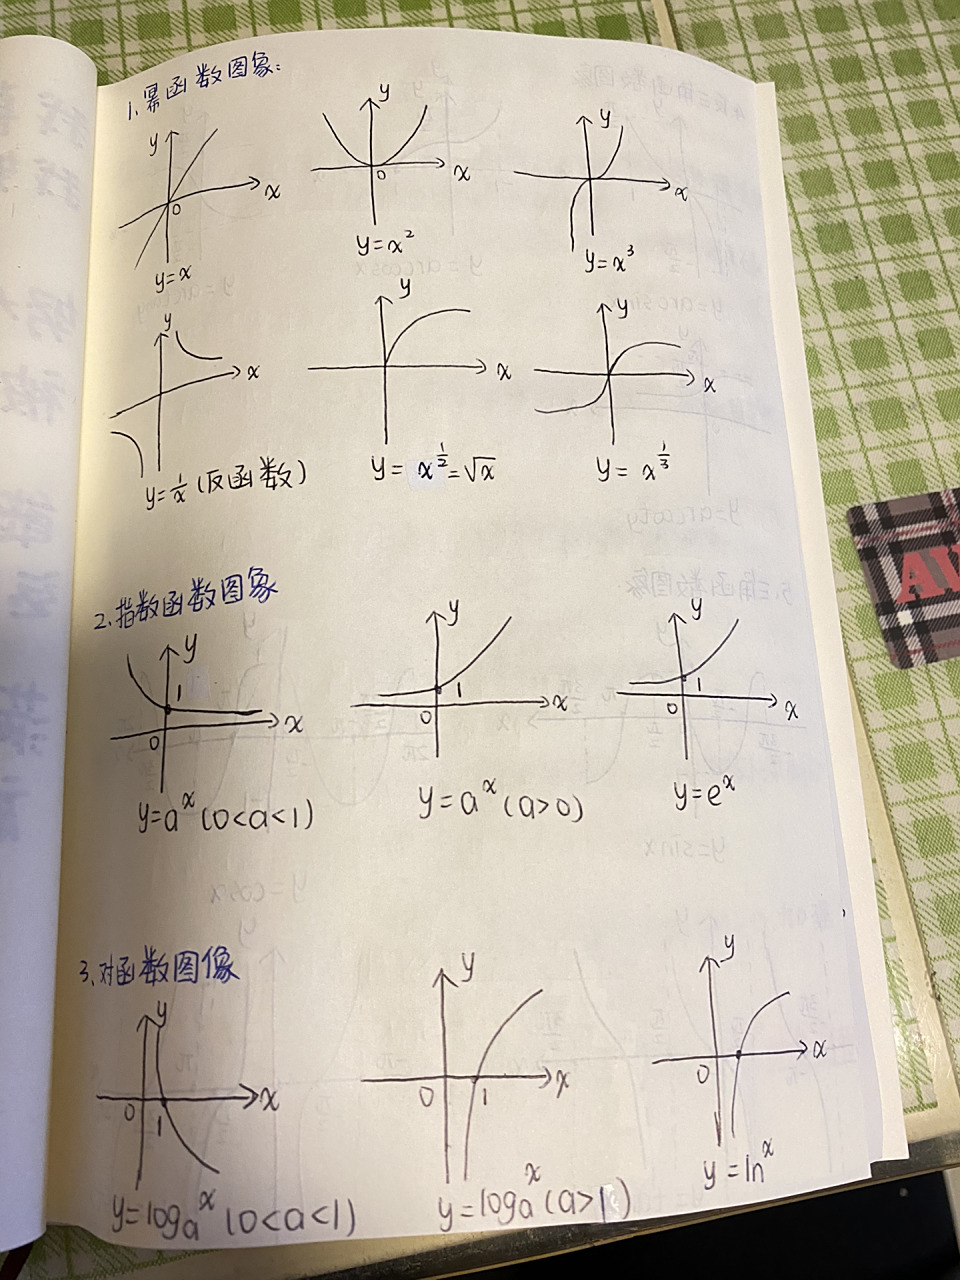 1.幂函数图象:
y
x
0
y=x
y
x
0
y=x²
y
x
y=x³
y
x
y=1/x (反函数)
y
x
y=x^{1/2}=√x
y
x
y=x^{1/3}
2.指数函数图象
y
1
x
0
y=a^x (0<a<1)
y
1
0
x
y=a^x (a>0)
y
1
0
x
y=e^x
3.对函数图像
y
0
1
x
y=log_a^x (0<a<1)
y
0
1
x
y=log_a^x (a>1)
y
0
x
y=ln^x